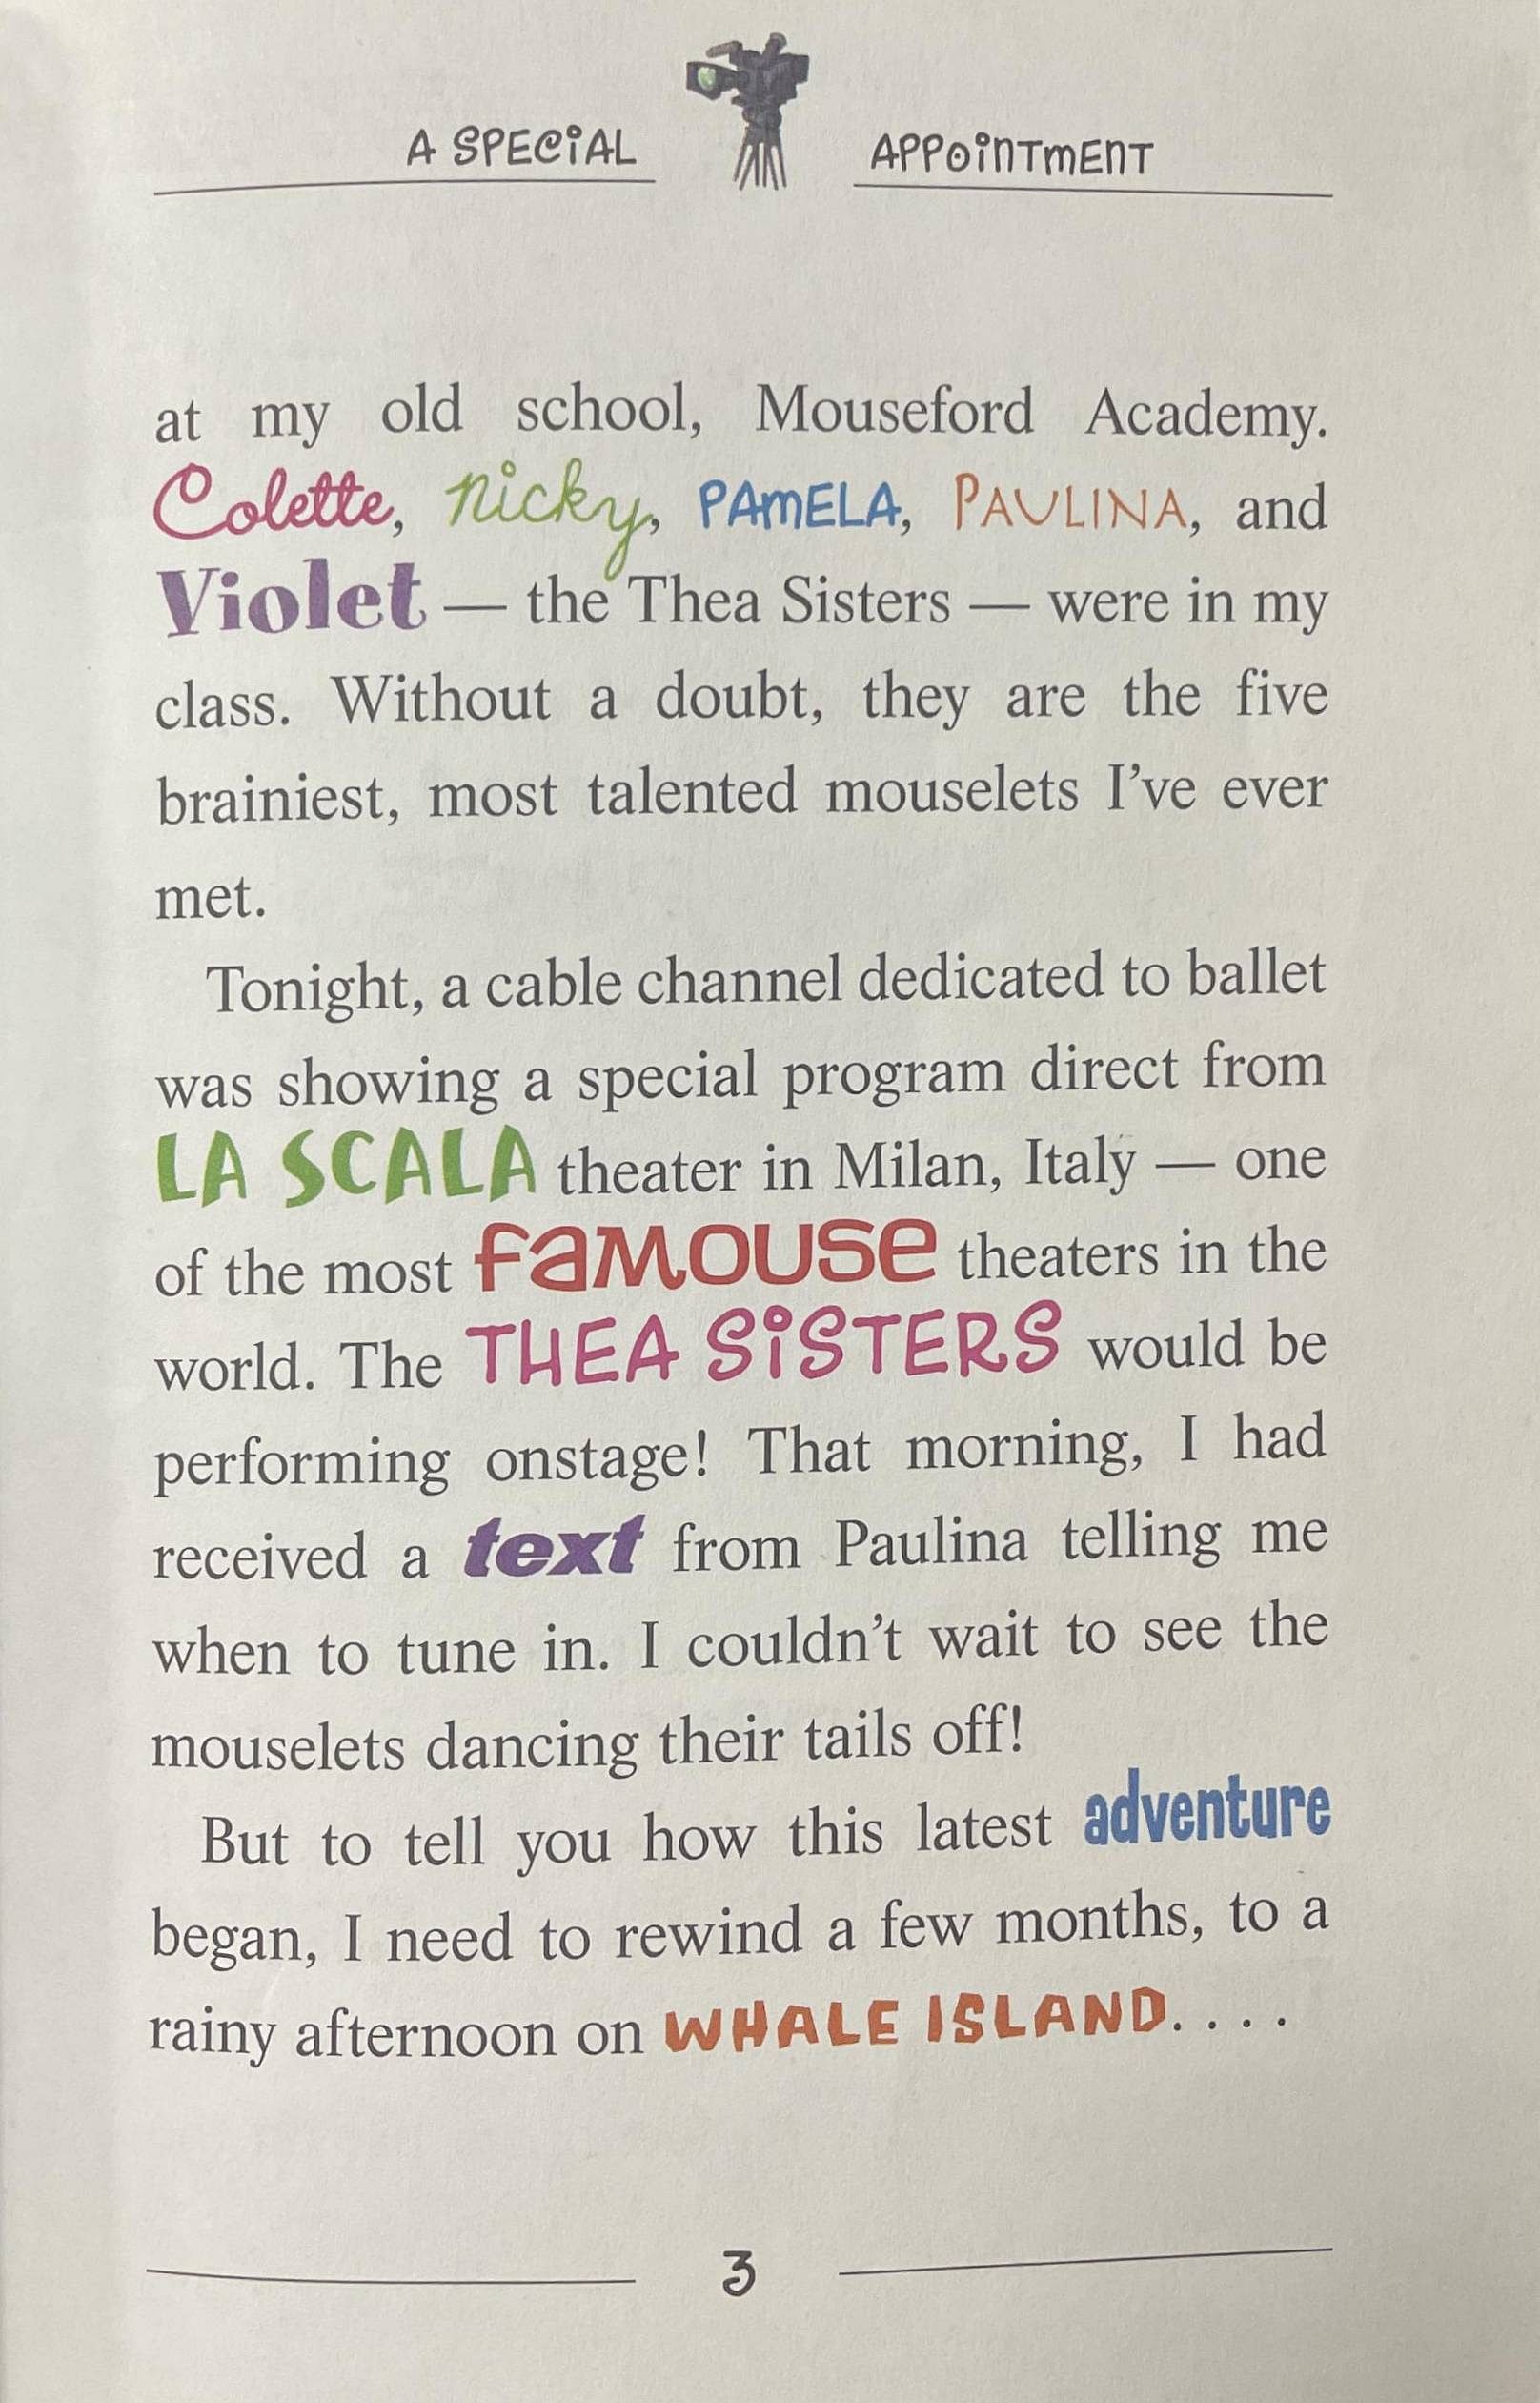 A SPECiAL APPOinTmEnT
at my old school, Mouseford Academy.
Colette, nicky, PAmELA, PAULINA, and
Violet — the Thea Sisters — were in my
class. Without a doubt, they are the five
brainiest, most talented mouselets I’ve ever
met.
Tonight, a cable channel dedicated to ballet
was showing a special program direct from
LA SCALA theater in Milan, Italy — one
of the most FaMOUSe theaters in the
world. The THEA SiSTERS would be
performing onstage! That morning, I had
received a text from Paulina telling me
when to tune in. I couldn’t wait to see the
mouselets dancing their tails off!
But to tell you how this latest adventure
began, I need to rewind a few months, to a
rainy afternoon on WHALE ISLAND. . . .
3